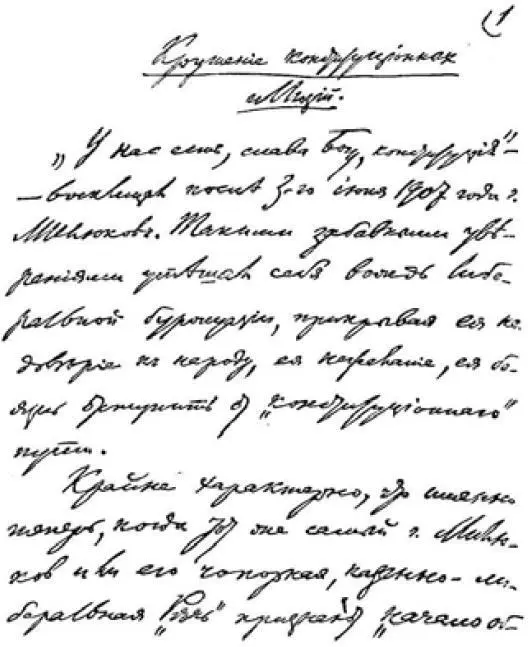 1
Крушеніе конституціонных
иллюзій.
„У нас есть, слава Богу, конституція" —
— восклицал после 3-го іюня 1907 года г.
Милюков. Такими забавными увѣ-
реніями утѣшал себя вождь либе-
ральной буржуазіи, прикрывая ея не-
довѣріе к народу, ея нежеланіе, ея бо-
язнь сойти с „конституціоннаго"
пути.
Крайне характерно, что именно
теперь, когда тот же самый г. Милю-
ков или его чопорная, казенно-ли-
беральная „Рѣчь" признает „начало об-